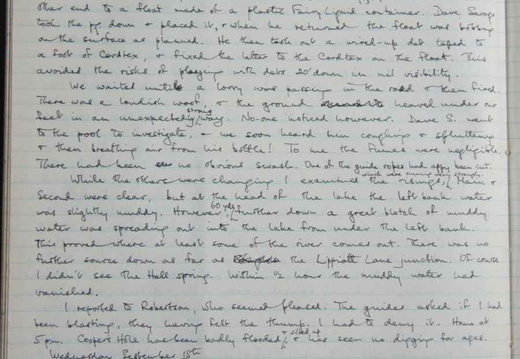 other end to a float made of a plastic Fairy Liquid container. Dave Savage
took the down & placed it, & when he returned the float was bobbing
on the surface as planned. He then took out a wired-up det taped to
a foot of Cordtex, & fixed the latter to the Cordtex on the float. This
avoided the risks of playing with dets 20' down in nil visibility.
We waited until a lorry was passing on the road & then fired.
There was a loudish woof & the ground heaved under our
feet in an unexpectedly strong way. No-one noticed however. Dave S. went
to the pool to investigate, & we soon heard him coughing & spluttering
& then breathing air from his bottle! To me the fumes were negligible.
There had been no obvious swash. One of the guide ropes had been cut.
While the others were changing I examined the risings, which were running very strongly. Main &
Second were clear, but at the head of the lake the left bank water
was slightly muddy. However, 60 yds further down a great blotch of muddy
water was spreading out into the lake from under the left bank.
This proved where at least some of the river comes out. There was no
further source down as far as the Lippiatt Lane junction. Of course
I didn't see the Hall spring. Within ½ hour the muddy water had
vanished.
I reported to Robertson, who seemed pleased. The guides asked if I had
been blasting, they having felt the thump. I had to deny it. Home at
5 pm. Cowper's Hole has been badly flooded & silted up & has seen no digging for ages.
Wednesday September 18th